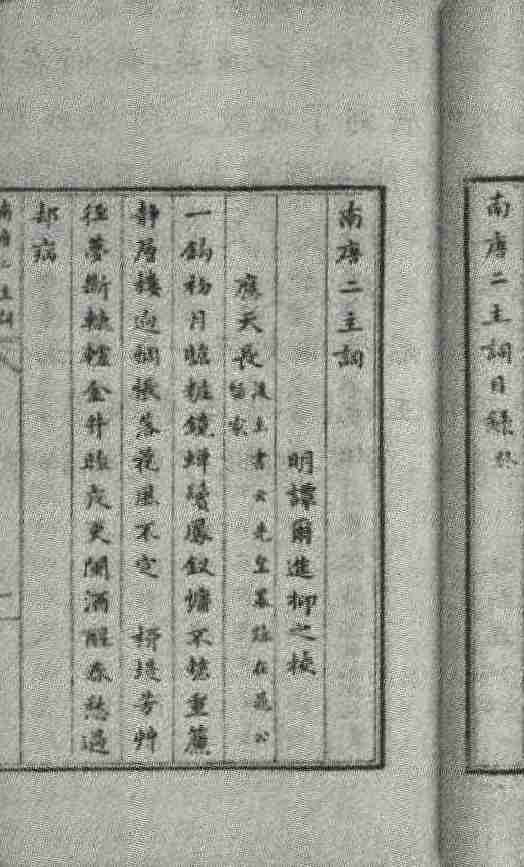 南唐二主詞目錄終
南唐二主詞
明譚爾進抑之校
應天長後主書云先皇墨蹟在晁公留家
一鈎初月臨粧鏡蟬鬢鳳釵慵不整重簾
靜層樓迥惆悵落花風不定 柳堤芳艸
徑夢斷轆轤金井昨夜更闌酒醒春愁過
却病
南唐二主詞